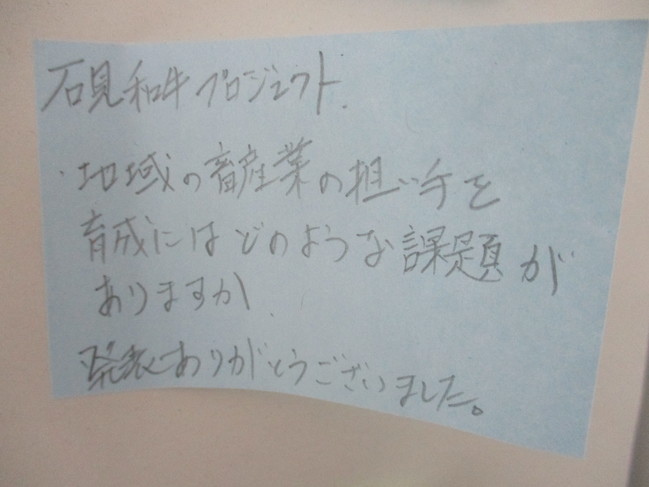 石見和牛プロジェクト.
・地域の畜産業の担い手を
育成にはどのような課題が
ありますか.
発表ありがとうございました。